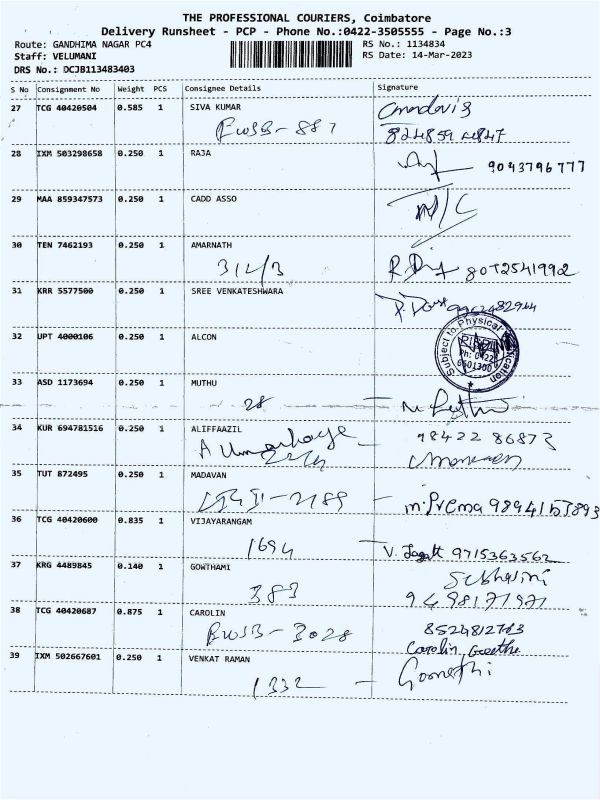 THE PROFESSIONAL COURIERS, Coimbatore
Delivery Runsheet - PCP - Phone No.:0422-3505555 - Page No.:3
Route: GANDHIMA NAGAR PC4 RS No.: 1134834
Staff: VELUMANI RS Date: 14-Mar-2023
DRS No.: DCJB113483403
S No Consignment No Weight PCS Consignee Details Signature
27 TCG 40420504 0.585 1 SIVA KUMAR
28 IXM 503298658 0.250 1 RAJA
9043796777
29 MAA 859347573 0.250 1 CADD ASSO
30 TEN 7462193 0.250 1 AMARNATH
31 KRR 5577500 0.250 1 SREE VENKATESHWARA
32 UPT 4000106 0.250 1 ALCON
Subject to Physical
33 ASD 1173694 0.250 1 MUTHU
28
34 KUR 694781516 0.250 1 ALIFFAAZIL 98422 86873
35 TUT 872495 0.250 1 MADAVAN
m.Prema
36 TCG 40420600 0.835 1 VIJAYARANGAM
1694 9715363562
37 KRG 4489845 0.140 1 GOWTHAMI
383
38 TCG 40420687 0.875 1 CAROLIN
BWSB-3028
Carolin Geetha
39 IXM 502667601 0.250 1 VENKAT RAMAN
1332 - Gomathi